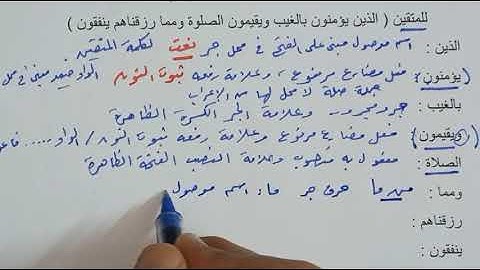 للمتقين ( الذين يؤمنون بالغيب ويقيمون الصلوة ومما رزقناهم ينفقون )
الذين : اسم موصول مبني على الفتح في محل جر نعت لكلمة المتقين
يؤمنون : فعل مضارع مرفوع وعلامة رفعه ثبوت النون الواو ضمير مبني في محل
جملة صلة لا محل لها من الإعراب
بالغيب : جار ومجرور وعلامة الجر الكسرة الظاهرة
ويقيمون : فعل مضارع مرفوع وعلامة رفعه ثبوت النون / الواو ..... فاعل
الصلاة : مفعول به منصوب وعلامة النصب الفتحة الظاهرة
ومما : من ما حرف جر ما : اسم موصول
رزقناهم :
ينفقون :